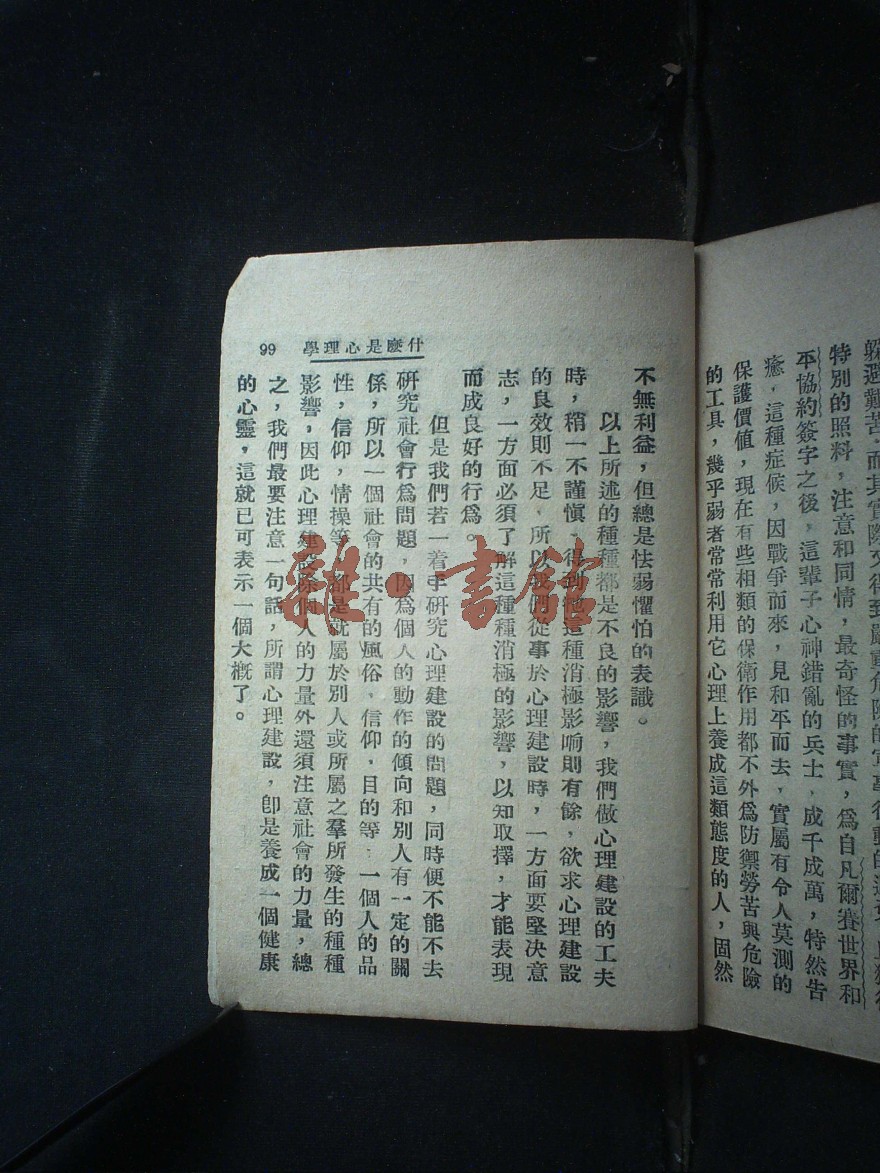 躱避艱苦,而其實際又得到嚴重危險的
特別的照料,注意和同情,最奇怪的事實,爲自凡爾賽世界和
平協約簽字之後,這輩子心神錯亂的兵士,成千成萬,特然告
癒,這種症候,因戰爭而來,見和平而去,實屬有令人莫測的
保護價値,現在有些相類的保衛作用都不外爲防禦勞苦與危險
的工具,幾乎弱者常常利用它心理上養成這類態度的人,固然
什麼是心理學 99
不無利益,但總是怯弱懼怕的表識。
以上所述的種種都是不良的影響,我們做心理建設的工夫
時,稍一不謹愼,得到他這種消極影响則有餘,欲求心理建設
的良效則不足,所以我們從事於心理建設時,一方面要堅決意
志,一方面必須了解這種種消極的影響,以知取擇,才能表現
而成良好的行爲。
但是我們若一着手研究心理建設的問題,同時便不能不去
研究社會行爲問題,因爲個人的動作的傾向和別人有一定的關
係,所以一個社會的共有的風俗,信仰,目的等,一個人的品
性,信仰,情操等,都是就屬於別人或所屬之羣所發生的種種
影響,因此心理建設除個人的力量外還須注意社會的力量,總
之,我們最要注意一句話,所謂心理建設,卽是養成一個健康
的心靈,這就已可表示一個大槪了。
雜·書館